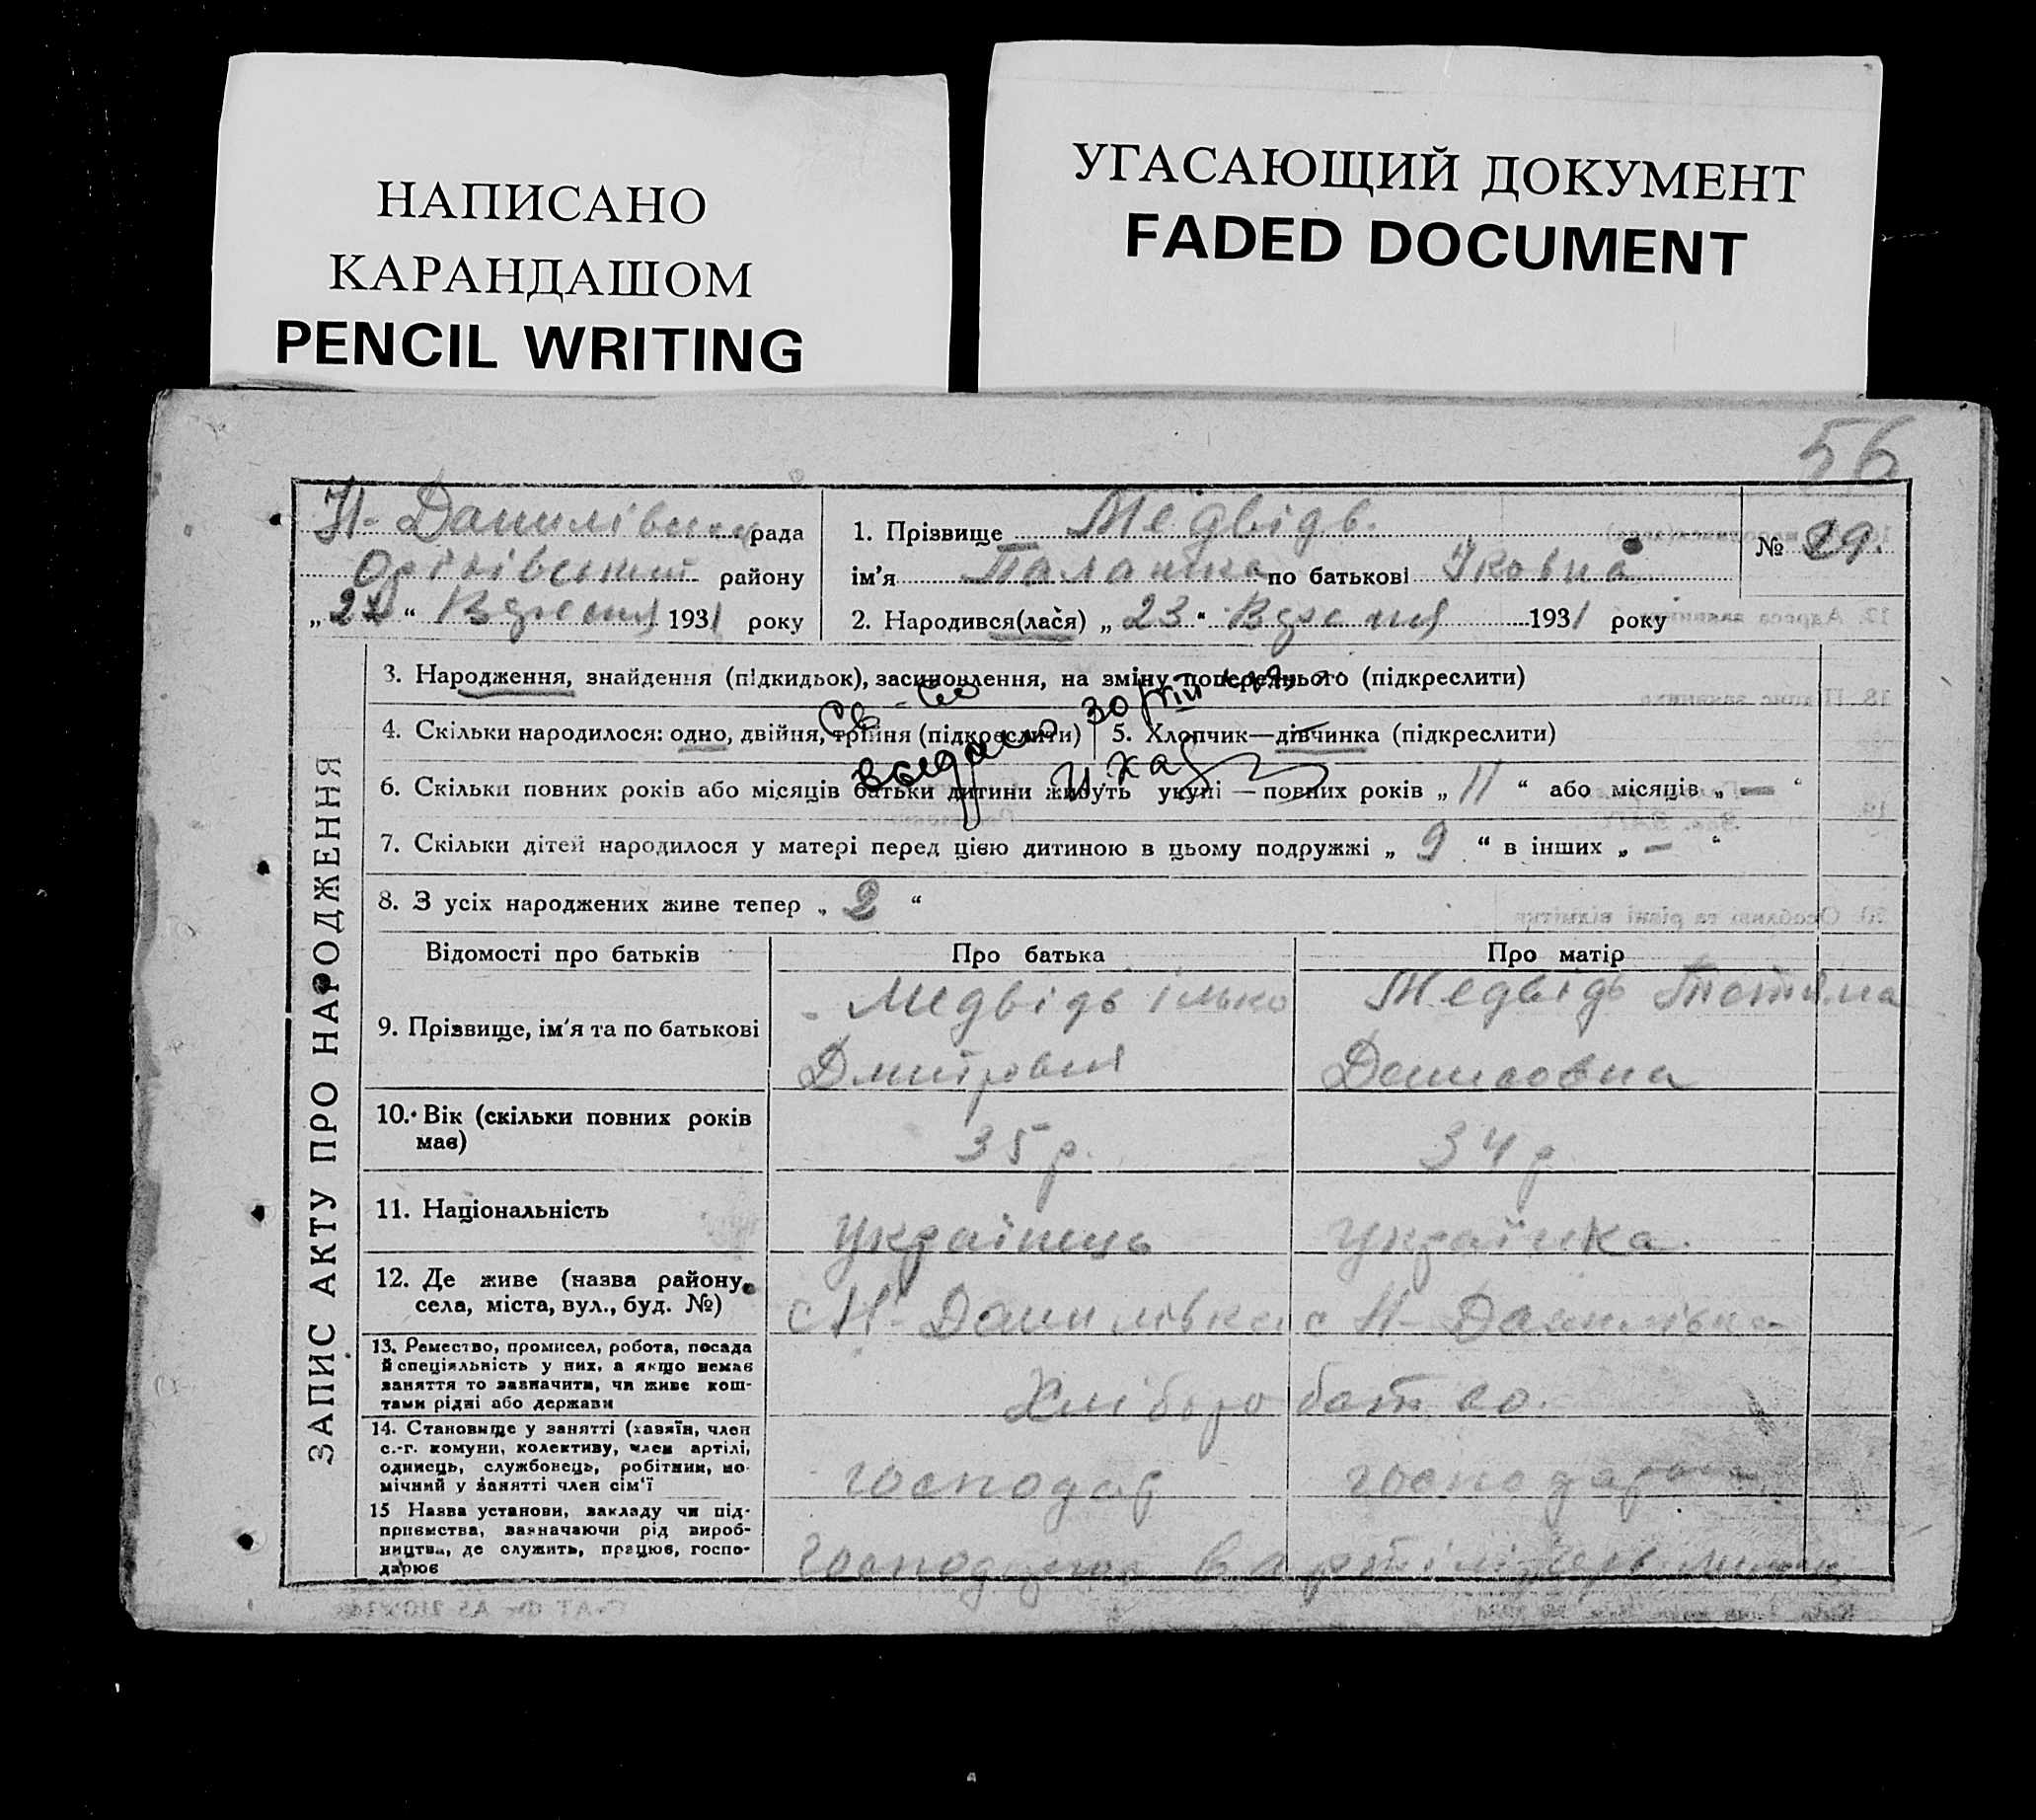 НАПИСАНО
КАРАНДАШОМ
PENCIL WRITING
УГАСАЮЩИЙ ДОКУМЕНТ
FADED DOCUMENT
56
ЗАПИС АКТУ ПРО НАРОДЖЕННЯ
Н-Данилівська рада
району
„ “ Вересня 1931 року
1. Прізвище Медвідь
ім'я по батькові
2. Народився(лася) „23“ Вересня 1931 року
№ 29.
3. Народження, знайдення (підкидьок), засиновлення, на зміну попереднього (підкреслити)
4. Скільки народилося: одно, двійня, трійня (підкреслити)
5. Хлопчик—дівчинка (підкреслити)
6. Скільки повних років або місяців батьки дитини живуть укупі — повних років „11“ або місяців „—“
7. Скільки дітей народилося у матері перед цією дитиною в цьому подружжі „9“ в інших „—“
8. З усіх народжених живе тепер „2“
Відомості про батьків
Про батька
Про матір
9. Прізвище, ім'я та по батькові
Медвідь Ілько
Медвідь
10. Вік (скільки повних років
має)
35 р.
34 р
11. Національність
Українець
Українка
12. Де живе (назва району,
села, міста, вул., буд. №)
с Н-Данилівка
с Н-Данилівка
13. Ремество, промисел, робота, посада
й спеціяльність у них, а якщо немає
заняття то зазначити, чи живе кош-
тами рідні або держави
Хліборобство.
14. Становище у занятті (хазяїн, член
с.-г. комуни, колективу, член артілі,
одинець, службовець, робітник, по-
мічний у занятті член сім'ї
господар
15 Назва установи, закладу чи під-
приємства, зазначаючи рід вироб-
ництва, де служить, працює, госпо-
дарює
в артілі